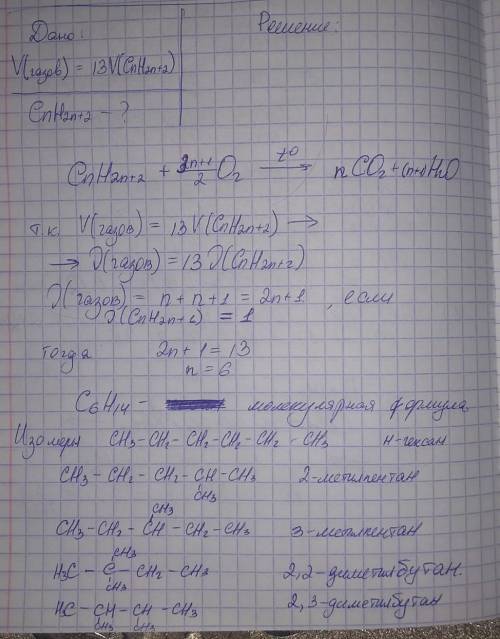 Дано:
Решение:
V(газов) = 13V(CnH2n+2)
CnH2n+2 - ?
CnH2n+2 + 3n+1/2 O2 →(t°) nCO2+(n+1)H2O
т.к. V(газов) = 13V(CnH2n+2) →
→ ϑ(газов) = 13 ϑ(CnH2n+2)
ϑ(газов) = n + n + 1 = 2n+1 , если
ϑ(CnH2n+2) = 1
тогда 2n + 1 = 13
n = 6
C6H14 - молекулярная формула.
Изомеры CH3-CH2-CH2-CH2-CH2-CH3 н-гексан
CH3-CH2-CH2-CH-CH3 2-метилпентан
CH3
CH3
CH3-CH2-CH-CH2-CH3 3-метилпентан
CH3
H3C-C-CH2-CH3 2,2-диметилбутан.
CH3
H3C-CH-CH-CH3 2,3-диметилбутан
CH3 CH3